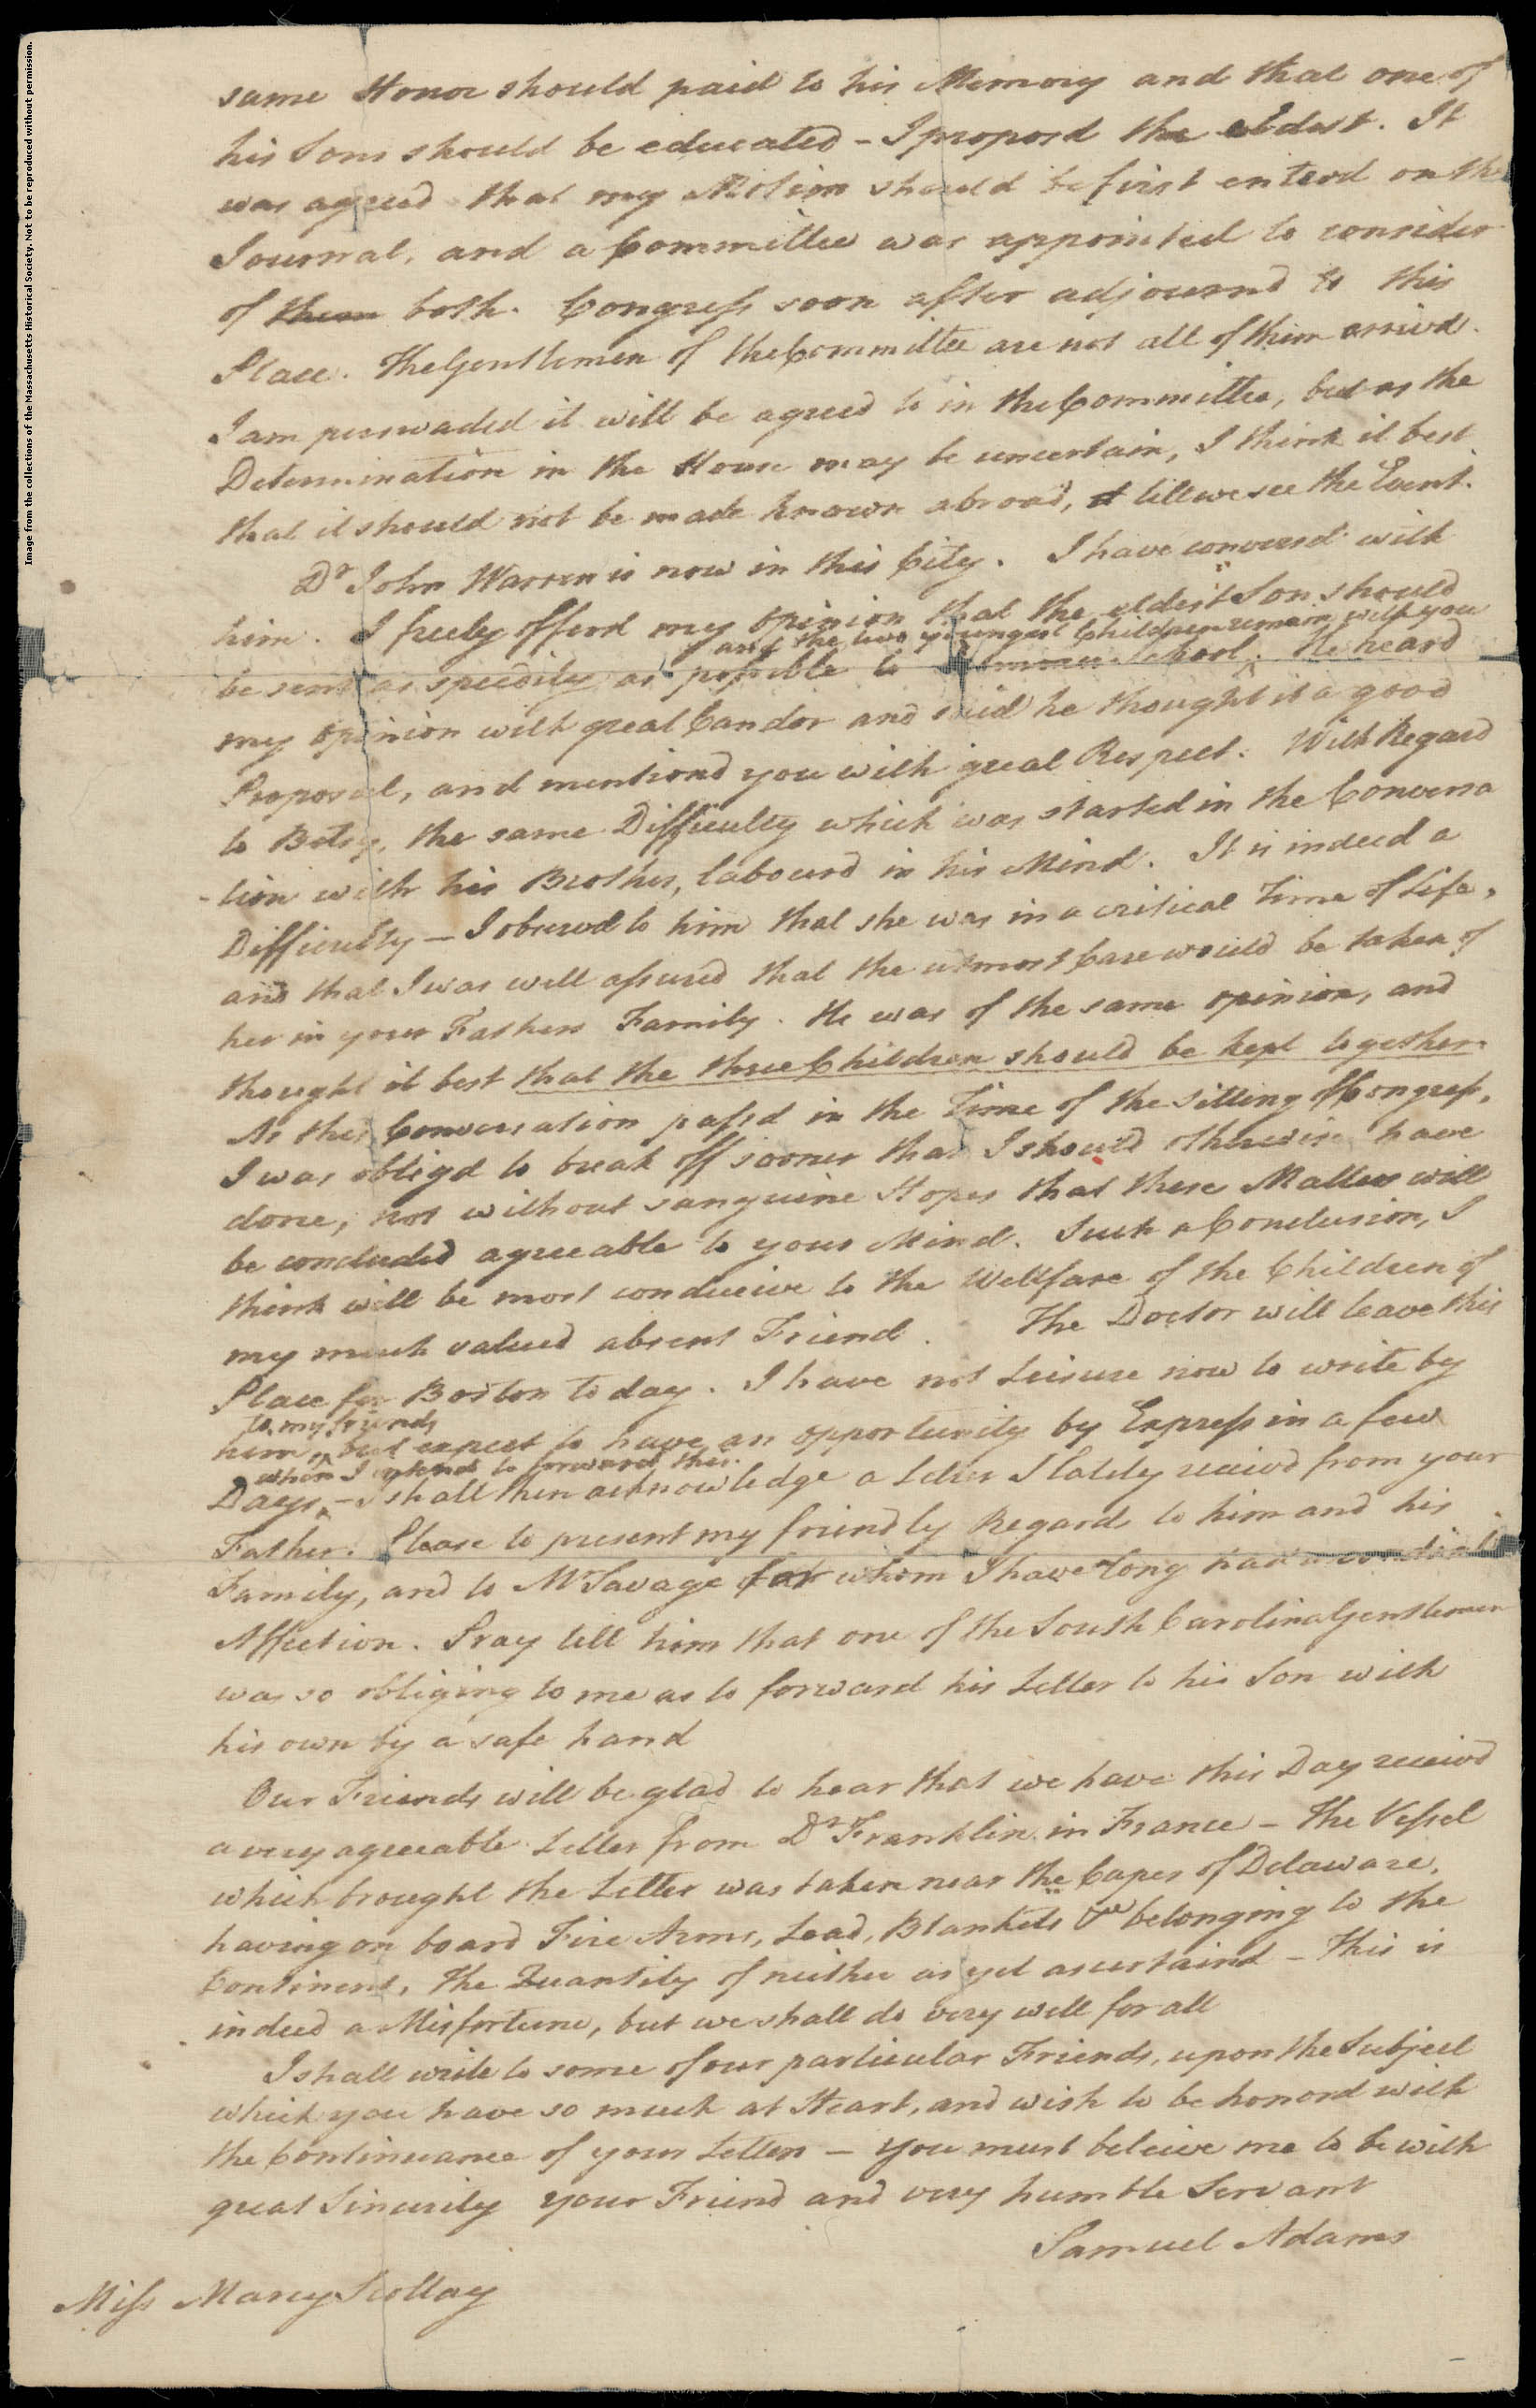 Image from the collections of the Massachusetts Historical Society. Not to be reproduced without permission.
same Honor should paid to his Memory and that one of
his Sons should be educated - I proposd the eldest. It
was agreed that my Motion should be first enterd on the
Journal, and a Committee was appointed to consider
of them both. Congress soon after adjournd to this
Place. The Gentlemen of the Committee are not all of them arrivd.
I am perswaded it will be agreed to in the Committee, but as the
Determination in the House may be uncertain, I think it best
that it should not be made known abroad, till we see the Event.
Dr John Warren is now in this City. I have conversd with
him. I freely offerd my opinion that the eldest Son should
and the two youngest Children remain with you
be sent as speedily as possible to School. He heard
my opinion with great Candor and said he thought it a good
Proposal, and mentiond you with great Respect. With Regard
to Betsy, the same Difficulty which was started in the Conversa
-tion with his Brother, labourd in his Mind. It is indeed a
Difficulty — I observd to him that she was in a critical Time of Life,
and that I was well assured that the utmost Care would be taken of
her in your Fathers Family. He was of the same opinion, and
thought it best that the three Children should be kept together.
As this Conversation passd in the Time of the sitting of Congress,
I was obligd to break off sooner than I should otherwise have
done, not without sanguine Hopes that these Matters will
be concluded agreeable to your Mind. Such a Conclusion, I
think will be most conducive to the Wellfare of the Children of
my much valued absent Friend. The Doctor will leave this
Place for Boston to day. I have not Leisure now to write by
to my friends
him, but expect to have an opportunity by Express in a few
when I intend to forward this.
Days, - I shall then acknowledge a Letter I lately receivd from your
Father. Please to present my friendly Regards to him and his
Family, and to Mr Savage for whom I have long had a cordial
Affection. Pray tell him that one of the South Carolina Gentlemen
was so obliging to me as to forward his Letter to his Son with
his own by a safe hand
Our Friends will be glad to hear that we have this Day receivd
a very agreeable Letter from Dr Franklin in France - The Vessel
which brought the Letter was taken near the Capes of Delaware,
having on board Fire Arms, Lead, Blankets &c belonging to the
Continent, the Quantity of neither as yet ascertaind - This is
indeed a Misfortune, but we shall do very well for all
I shall write to some of our particular Friends, upon the Subject
which you have so much at Heart, and wish to be honord with
the Continuance of your Letters — You must beleive me to be with
great Sincerity your Friend and very humble Servant
Samuel Adams
Miss Mercy Scollay